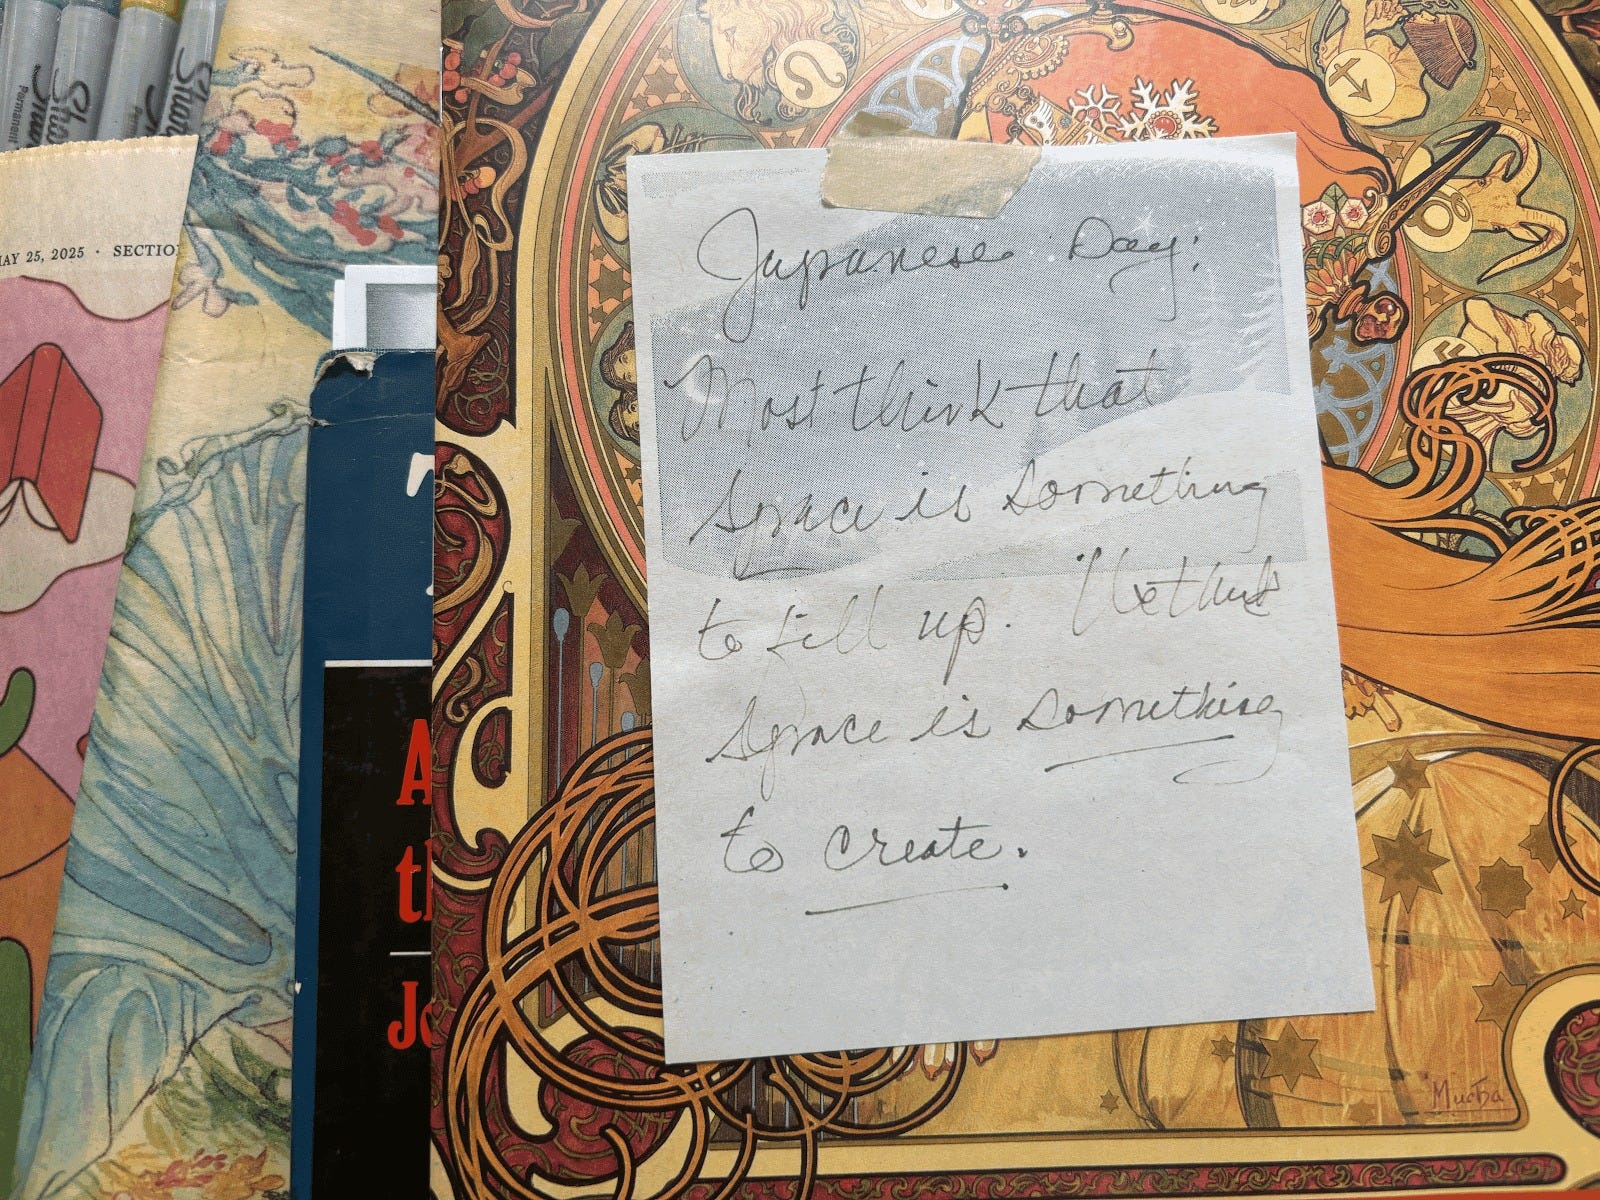 Sharpie
Permanent
MAY 25, 2025 · SECTION
Japanese Say:
Most think that
space is something
to fill up. We think
space is something
to create.
Mucha